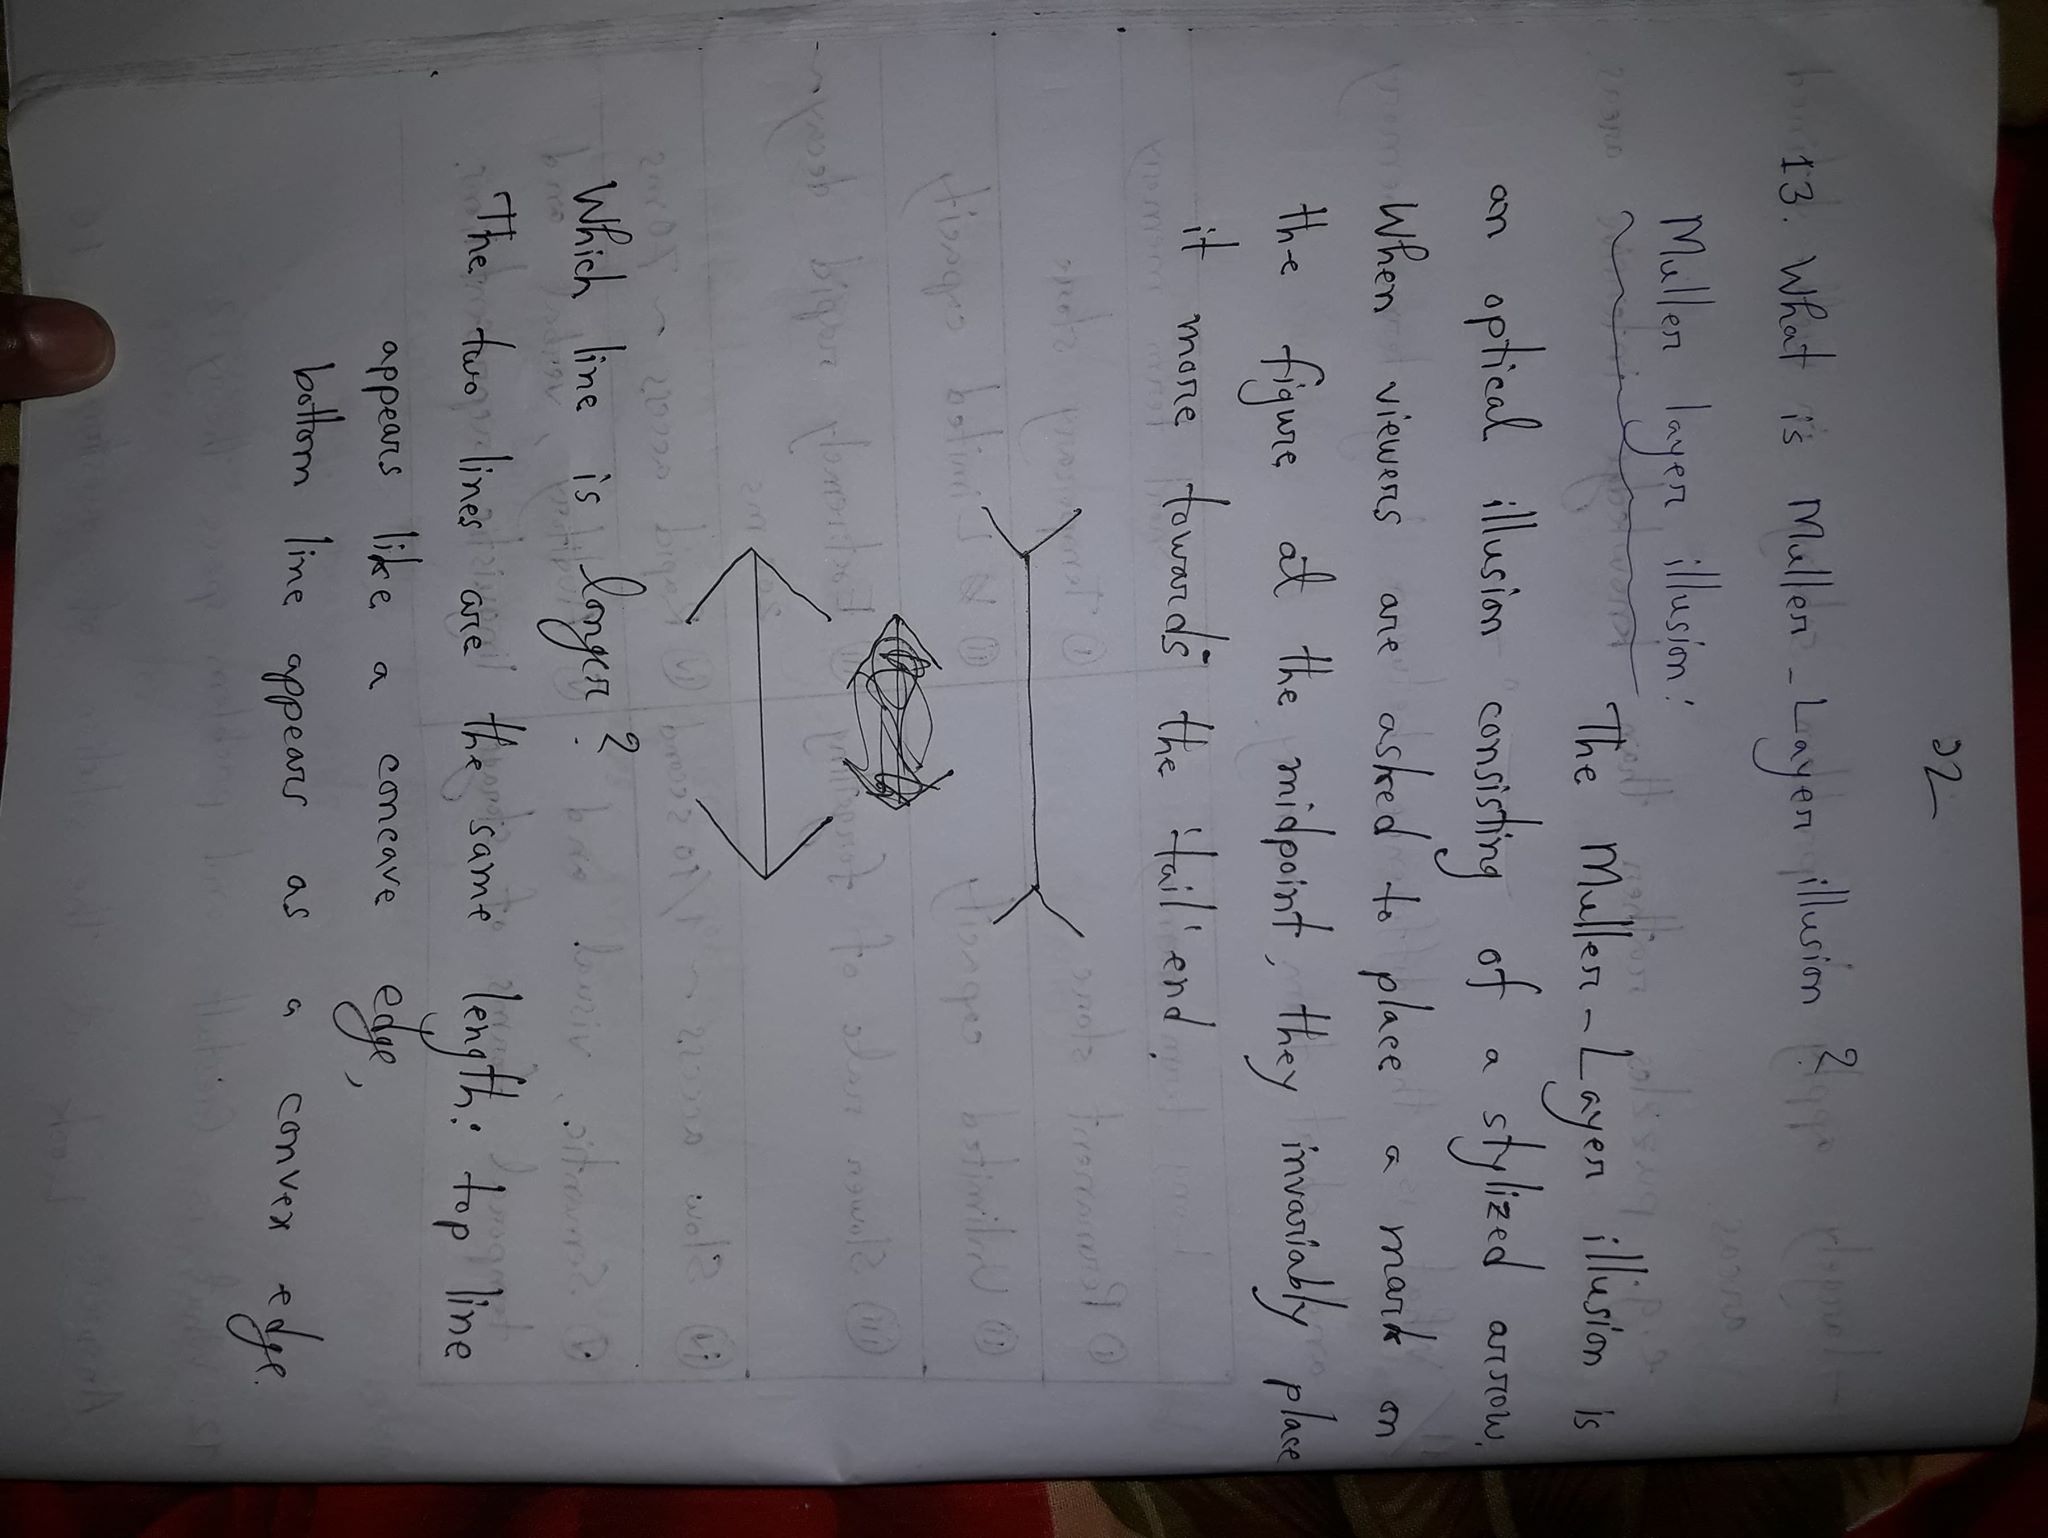 22
13. What is Muller-Layer illusion?
Muller layer illusion:
The Muller-Layer illusion is
an optical illusion consisting of a stylized arrow.
When viewers are asked to place a mark on
the figure at the midpoint, they invariably place
it more towards the 'tail' end.
Which line is longer?
The two lines are the same length: top line
appears like a concave edge,
bottom line appears as a convex edge.